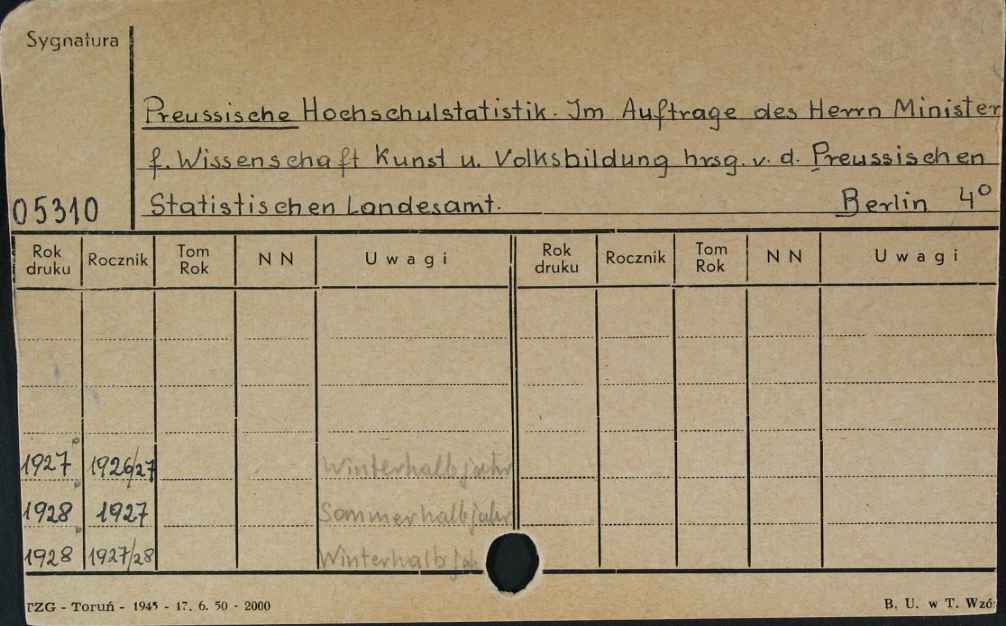 Sygnatura
Preussische Hochschulstatistik. Im Auftrage des Herrn Minister
f. Wissenschaft Kunst u. Volksbildung hrsg. v. d. Preussischen
05310 Statistischen Landesamt. Berlin 4°
Rok druku Rocznik Tom Rok N N Uwagi Rok druku Rocznik Tom Rok N N Uwagi
1927 1926/27 Winterhalbjahr
1928 1927 Sommerhalbjahr
1928 1927/28 Winterhalbja
TZG - Toruń - 1945 - 17. 6. 50 - 2000 B. U. w T. Wzó